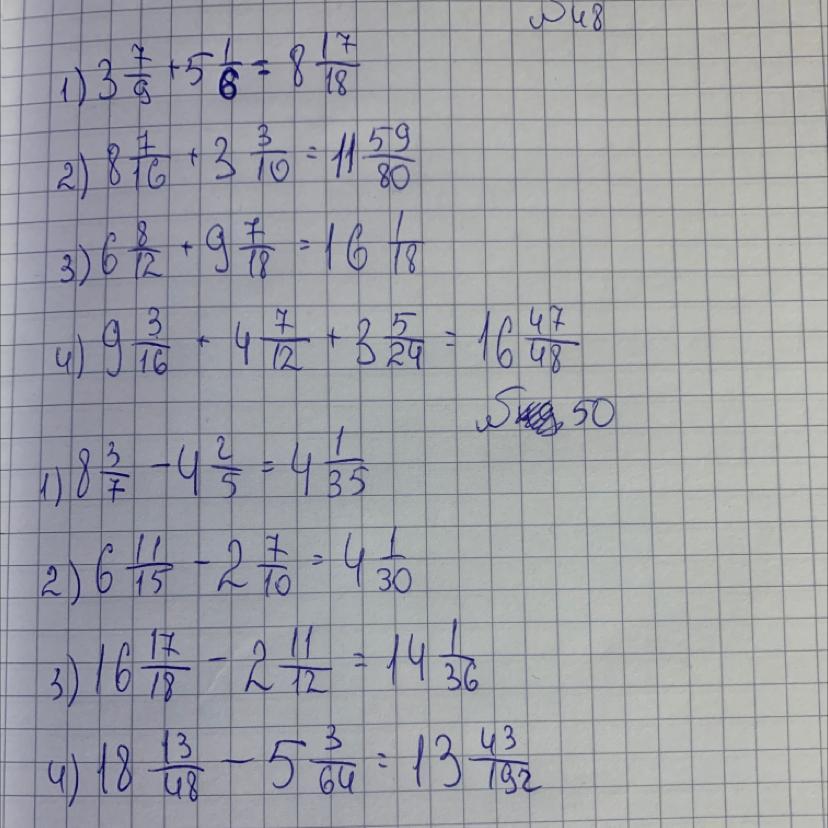 №48
1) 3 7/9 + 5 1/6 = 8 17/18
2) 8 7/16 + 3 3/10 = 11 59/80
3) 6 8/12 + 9 7/18 = 16 1/18
4) 9 3/16 + 4 7/12 + 3 5/24 = 16 47/48
№ 50
1) 8 3/7 - 4 2/5 = 4 1/35
2) 6 11/15 - 2 7/10 = 4 1/30
3) 16 17/18 - 2 11/12 = 14 1/36
4) 18 13/48 - 5 3/64 = 13 43/192